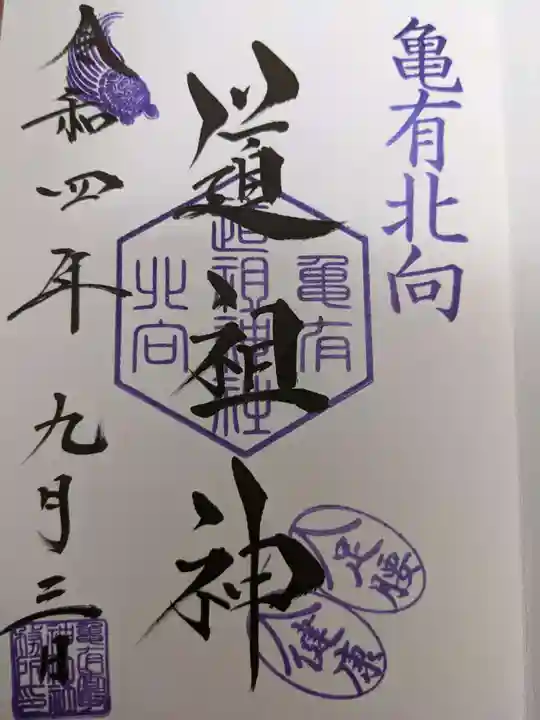 亀有北向
道祖神
亀有
道祖神社
北向
足腰
健康
令和四年九月三日